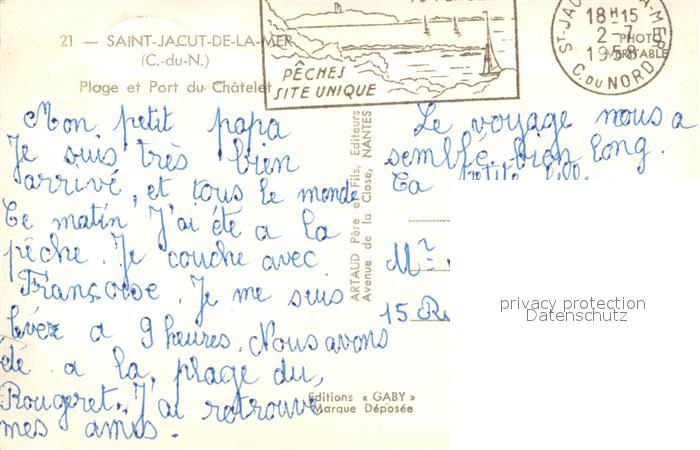 21 — SAINT-JACUT-DE-LA-MER
(C.-du-N.)
Plage et Port du Châtelet
PÊCHES
SITE UNIQUE
18H15
2-7
1958
C. DU NORD
PHOTO
VÉRITABLE
Mon petit papa
Je suis très bien
arrivé, et tous le monde
Ce matin J'ai été a la
pêche. Je couche avec
Françoise. Je me suis
levéz a 9 heures. Nous avons
été a la plage du
Rougeret. J'ai retrouvé
mes amis.
ARTAUD Père et Fils, Editeurs
Avenue de la Close, NANTES
Editions « GABY »
Marque Déposée
Le voyage nous a
semblé bien long.
Ta petite
Mr
15 R
privacy protection
Datenschutz